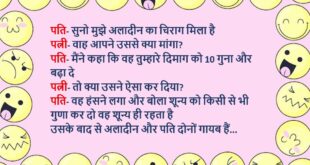 पति- सुनो मुझे अलादीन का चिराग मिला है
पत्नी- वाह आपने उससे क्या मांगा?
पति- मैंने कहा कि वह तुम्हारे दिमाग को 10 गुना और
बढ़ा दे
पत्नी- तो क्या उसने ऐसा कर दिया?
पति- वह हंसने लगा और बोला शून्य को किसी से भी
गुणा कर दो वह शून्य ही रहता है
उसके बाद से अलादीन और पति दोनों गायब हैं...